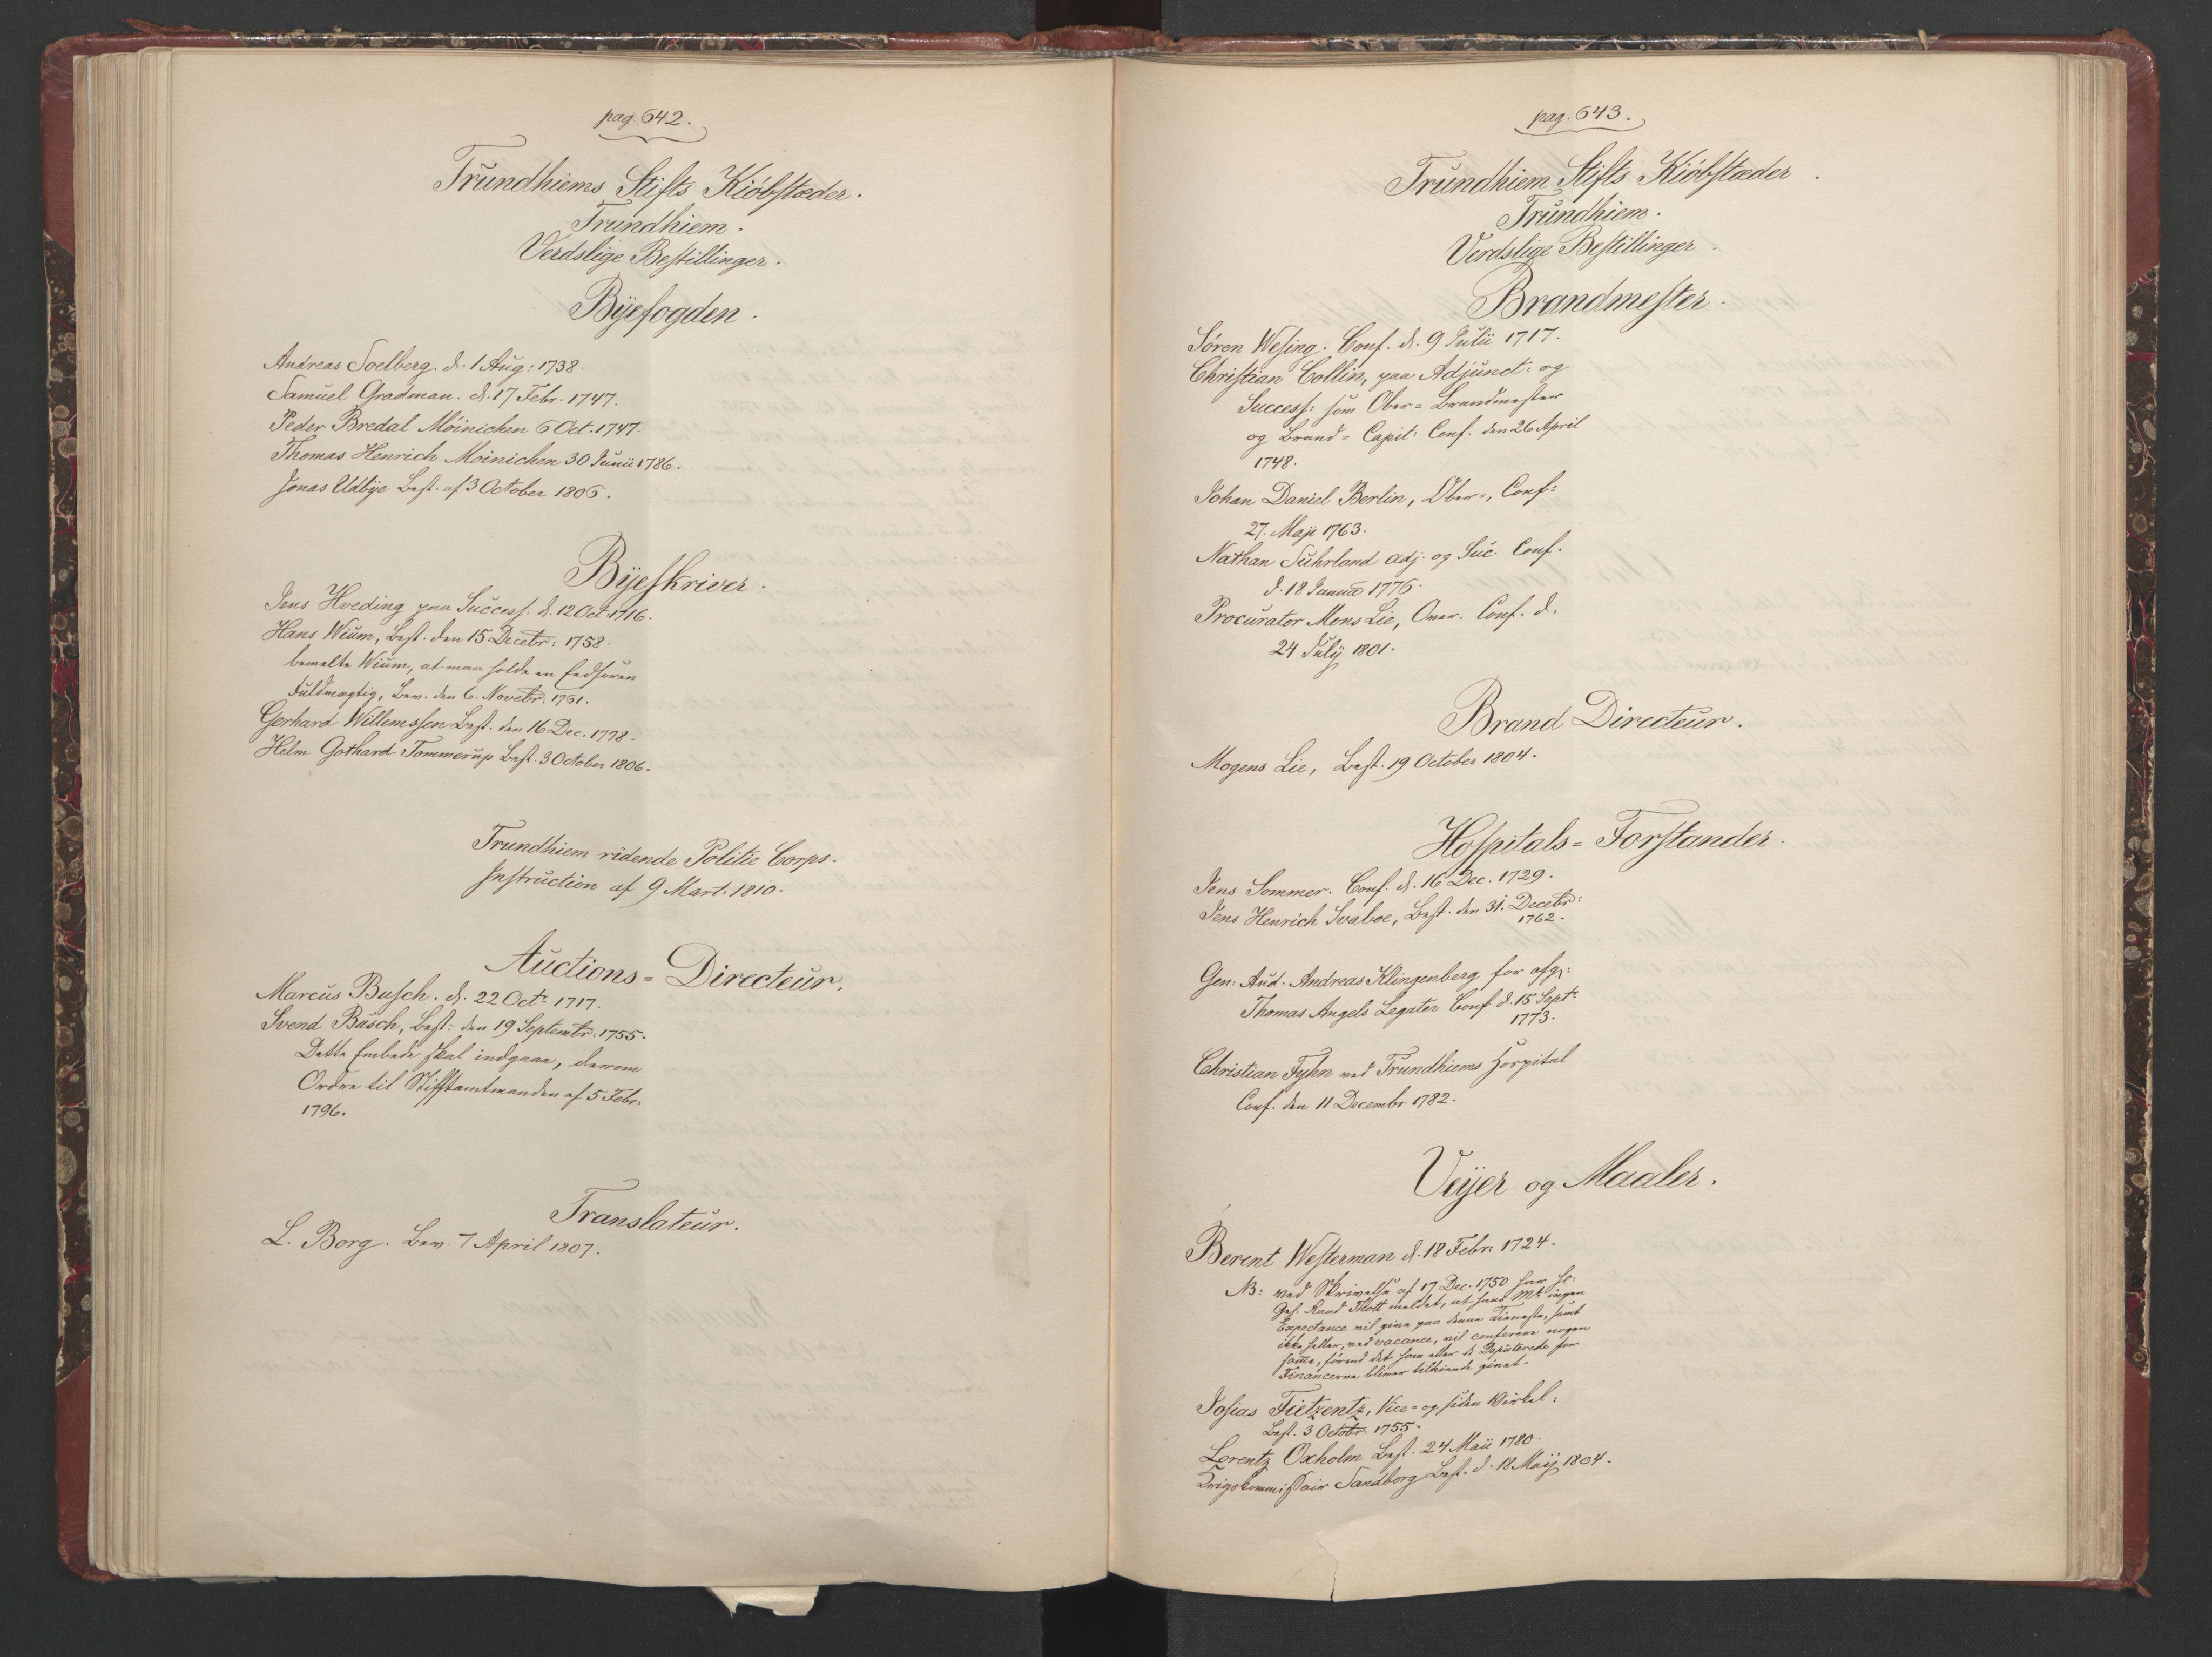 pag. 642.
Trundhiems Stifts Kiöbstæder.
Trundhiem.
Verdslige Bestillinger.
Byefogden.
Andreas Soelberg. d. 1 Aug: 1738.
Samuel Gradman. d. 17 Febr. 1747.
Peder Bredal Möinichen 6 Oct. 1747.
Thomas Henrich Moinichen 30 Junii 1786.
Jonas Udbye Best. af 3 October 1806.
Byeskriver.
Jens Hveding paa Success. d. 12 Oct 1716.
Hans Wium, Best. den 15 Decebr: 1758.
bemelte Wium, at maa holde en Eedsoren
Fuldmægtig, Bev. den 6. Novebr. 1761.
Gerhard Willemssen Best. den 16 Dec. 1778.
Helm Gothard Tommerup Best. 3 October 1806.
Trundhiem ridende Politie Corps.
Instruction af 9 Mart. 1810.
Auctions=Directeur.
Marcus Busch. d. 22 Octr 1717.
Svend Busch, Best: den 19 Septembr. 1755.
Dette Embede skal indgaae, derom
Ordre til Stiftamtmanden af 5 Febr.
1796.
Translateur.
L. Borg. Bev. 7 April 1807.
pag. 643.
Trundhiem Stifts Kiöbstæder.
Trundhiem.
Verdslige Bestillinger.
Brandmester.
Sören Wesing. Conf. d. 9 Julii 1717.
Christian Collin, paa Adjunct: og
Success: som Ober=Brandmester
og Brand=Capit: Conf. den 26 April
1748.
Johan Daniel Berlin, Ober=, Conf:
27. Maji 1763.
Nathan Suhrland adj. og Suc. Conf.
d. 18 Janua 1776.
Procurator Mons Lie, Over. Conf. d.
24 July 1801.
Brand Directeur.
Mogens Lie, Best. 19 October 1804.
Hospitals=Forstander.
Jens Sommer. Conf. d. 16 Dec. 1729.
Jens Henrich Svaboe, Best. den 31. Decebr:
1762.
Gen: Aud. Andreas Klingenberg for afg:
Thomas Angels Legater Conf. d. 15 Septr
1773.
Christian Fyhn ved Trundhiems Hospital
Conf. den 11 Decembr. 1782.
Veijer og Maaler.
Berent Westerman d. 18 Febr. 1724.
NB: ved Skrivelse af 17 Dec. 1750 har Hr:
Geh. Raad Thott meldet, at hans Mt ingen
Expectance vil give paa denne Tieneste, samt
ikke heller, ved vacance, vil conferere nogen
samme, førend det ham eller de Deputerede for
Financerne bliver tilkiende givet.
Josias Fietzentz, Vice= og siden Virkel:
Best. 3 Octobr. 1755.
Lorentz Oxholm Best. 24 Maii 1780.
Krigskommissair Sandborg Best. d. 18 Maij 1804.